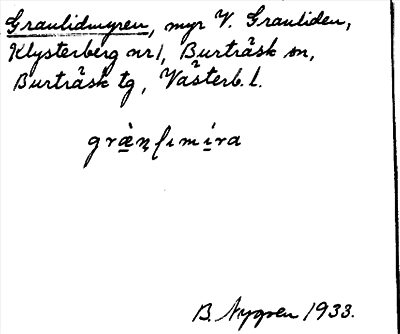 Granlidmyren, myr V. Granliden,
Klysterberg nr 1, Burträsk sn,
Burträsk tg, Västerb. l.
græ̀n̥ſımı̀ra
B. Nygren 1933.